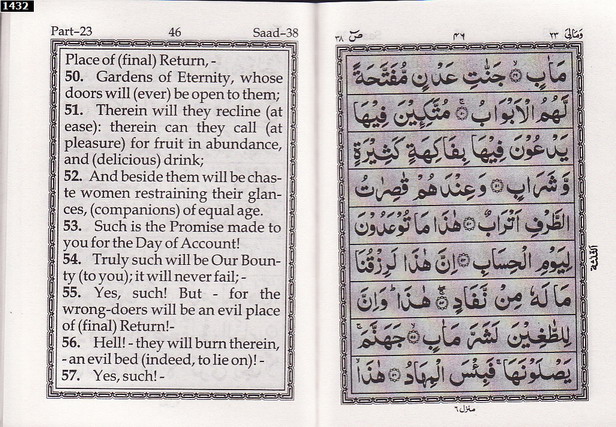 1432
Part-23 46 Saad-38
Place of (final) Return, -
50. Gardens of Eternity, whose
doors will (ever) be open to them;
51. Therein will they recline (at
ease): therein can they call (at
pleasure) for fruit in abundance,
and (delicious) drink;
52. And beside them will be chas-
te women restraining their glan-
ces, (companions) of equal age.
53. Such is the Promise made to
you for the Day of Account!
54. Truly such will be Our Boun-
ty (to you); it will never fail; -
55. Yes, such! But - for the
wrong-doers will be an evil place
of (final) Return!-
56. Hell! - they will burn therein,
- an evil bed (indeed, to lie on)! -
57. Yes, such! -
ومالی ٢٣ ٤٦ صٓ ٣٨
مَاٰبٍ ﴿٤٩﴾ جَنّٰتِ عَدْنٍ مُّفَتَّحَةً
لَّهُمُ الْاَبْوَابُ ﴿٥٠﴾ مُتَّكِـِٕيْنَ فِيْهَا
يَدْعُوْنَ فِيْهَا بِفَاكِهَةٍ كَثِيْرَةٍ
وَّشَرَابٍ ﴿٥١﴾ وَعِنْدَهُمْ قٰصِرٰتُ
الطَّرْفِ اَتْرَابٌ ﴿٥٢﴾ هٰذَا مَا تُوْعَدُوْنَ
لِيَوْمِ الْحِسَابِ ﴿٥٣﴾ اِنَّ هٰذَا لَرِزْقُنَا
مَا لَهٗ مِنْ نَّفَادٍ ﴿٥٤﴾ هٰذَا ؕ وَاِنَّ
لِلطّٰغِيْنَ لَشَرَّ مَاٰبٍ ﴿٥٥﴾ جَهَنَّمَ ۚ
يَصْلَوْنَهَا ۚ فَبِئْسَ الْمِهَادُ ﴿٥٦﴾ هٰذَا ۙ
الثلثة
منزل ٦